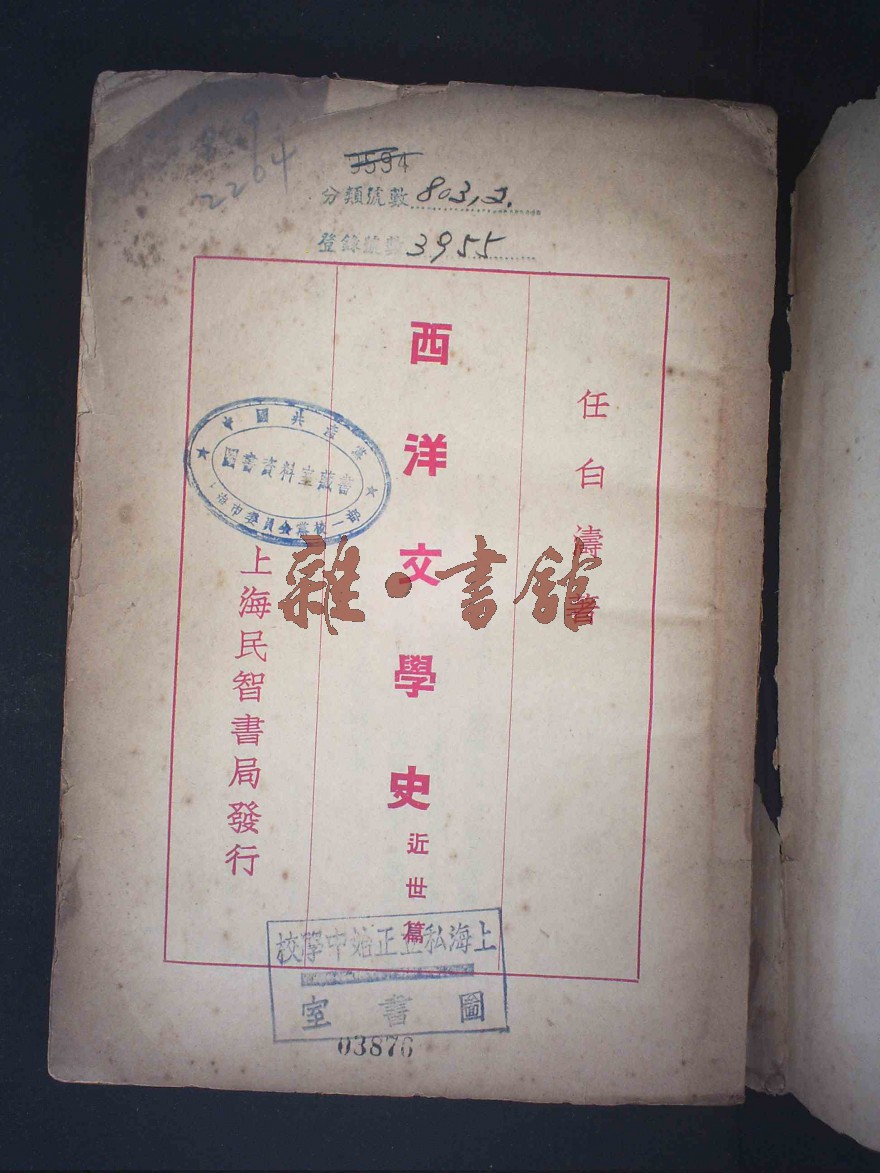 2264
9594
分類號數 803,2.
登錄號數 3955
任白濤著
西洋文學史 近世篇
上海民智書局發行
中國共產黨
圖書資料室藏書
市委員會黨校一部
雜·書館
上海私立正始中學校
圖書室
03876